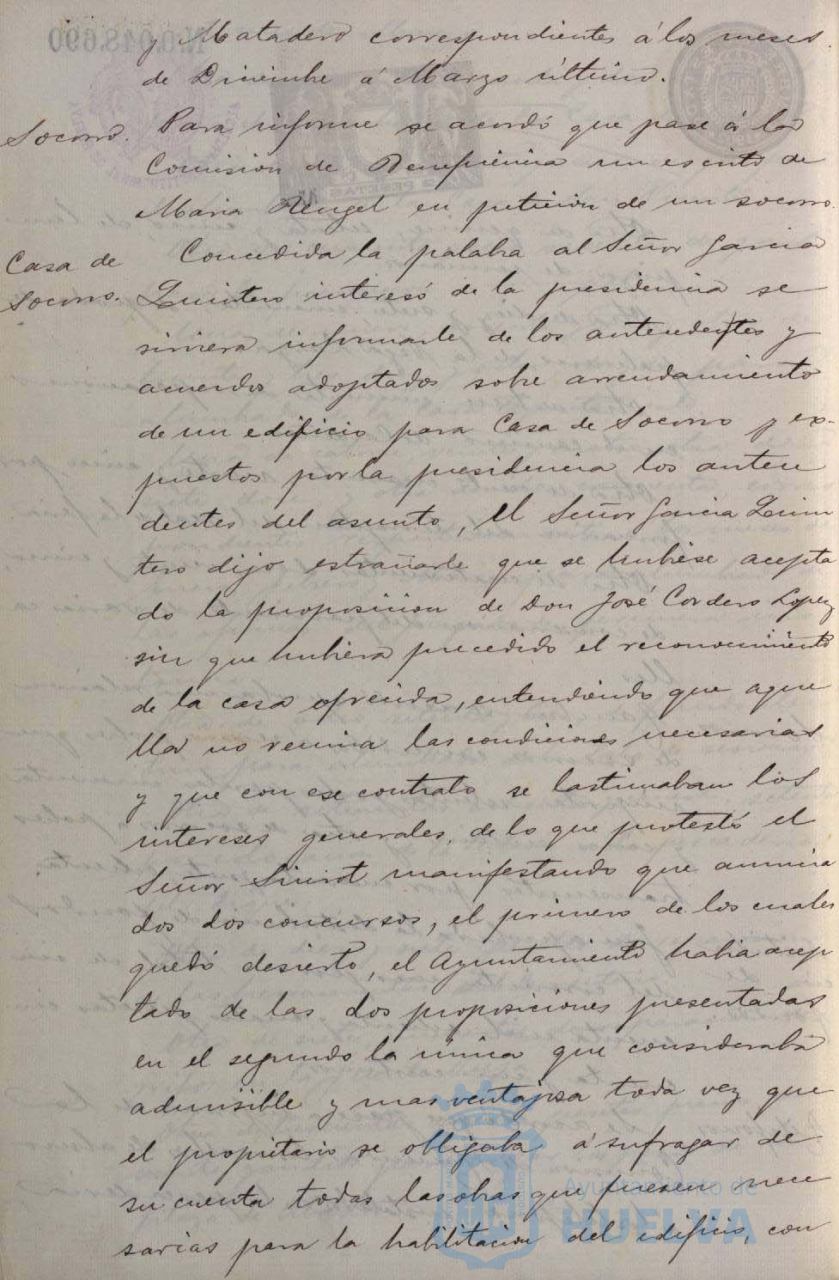 Nº 0.048.690
y Matadero correspondientes á los meses
de Diciembre á Marzo último.
Socorro. Para informe se acordó que pase á la
Comision de Beneficencia un escrito de
Maria Rengel en peticion de un socorro.
Casa de Concedida la palabra al Señor Garcia
Socorro. Quintero interesó de la presidencia se
sirviera informarle de los antecedentes y
acuerdos adoptados sobre arrendamiento
de un edificio para Casa de Socorro y ex-
puestos por la presidencia los antece
dentes del asunto, el Señor Garcia Quin
tero dijo estrañarle que se hubiese acepta
do la proposicion de Don José Cordero Lopez
sin que hubiera precedido el reconocimiento
de la casa ofrecida, entendiendo que aque
lla no reunia las condiciones necesarias
y que con ese contrato se lastimaban los
intereses generales, de lo que protestó el
Señor Siurot manifestando que anuncia
dos dos concursos, el primero de los cuales
quedó desierto, el Ayuntamiento habia acep
tado de las dos proposiciones presentadas
en el segundo la única que consideraba
admisible y mas ventajosa toda vez que
el propietario se obligaba á sufragar de
su cuenta todas las obras que fuesen nece
sarias para la habilitacion del edificio, con
Ayuntamiento de
HUELVA